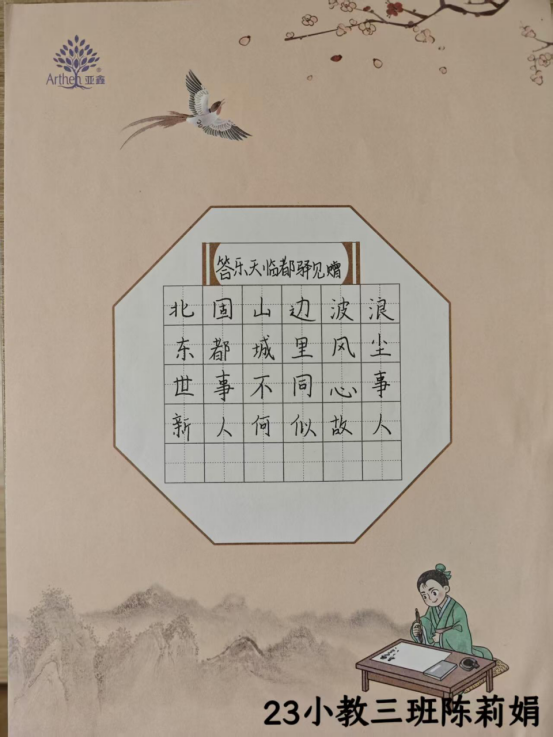 Arthen 亚鑫
答乐天临都驿见赠
北固山边波浪
东都城里风尘
世事不同心事
新人何似故人
23小教三班陈莉娟